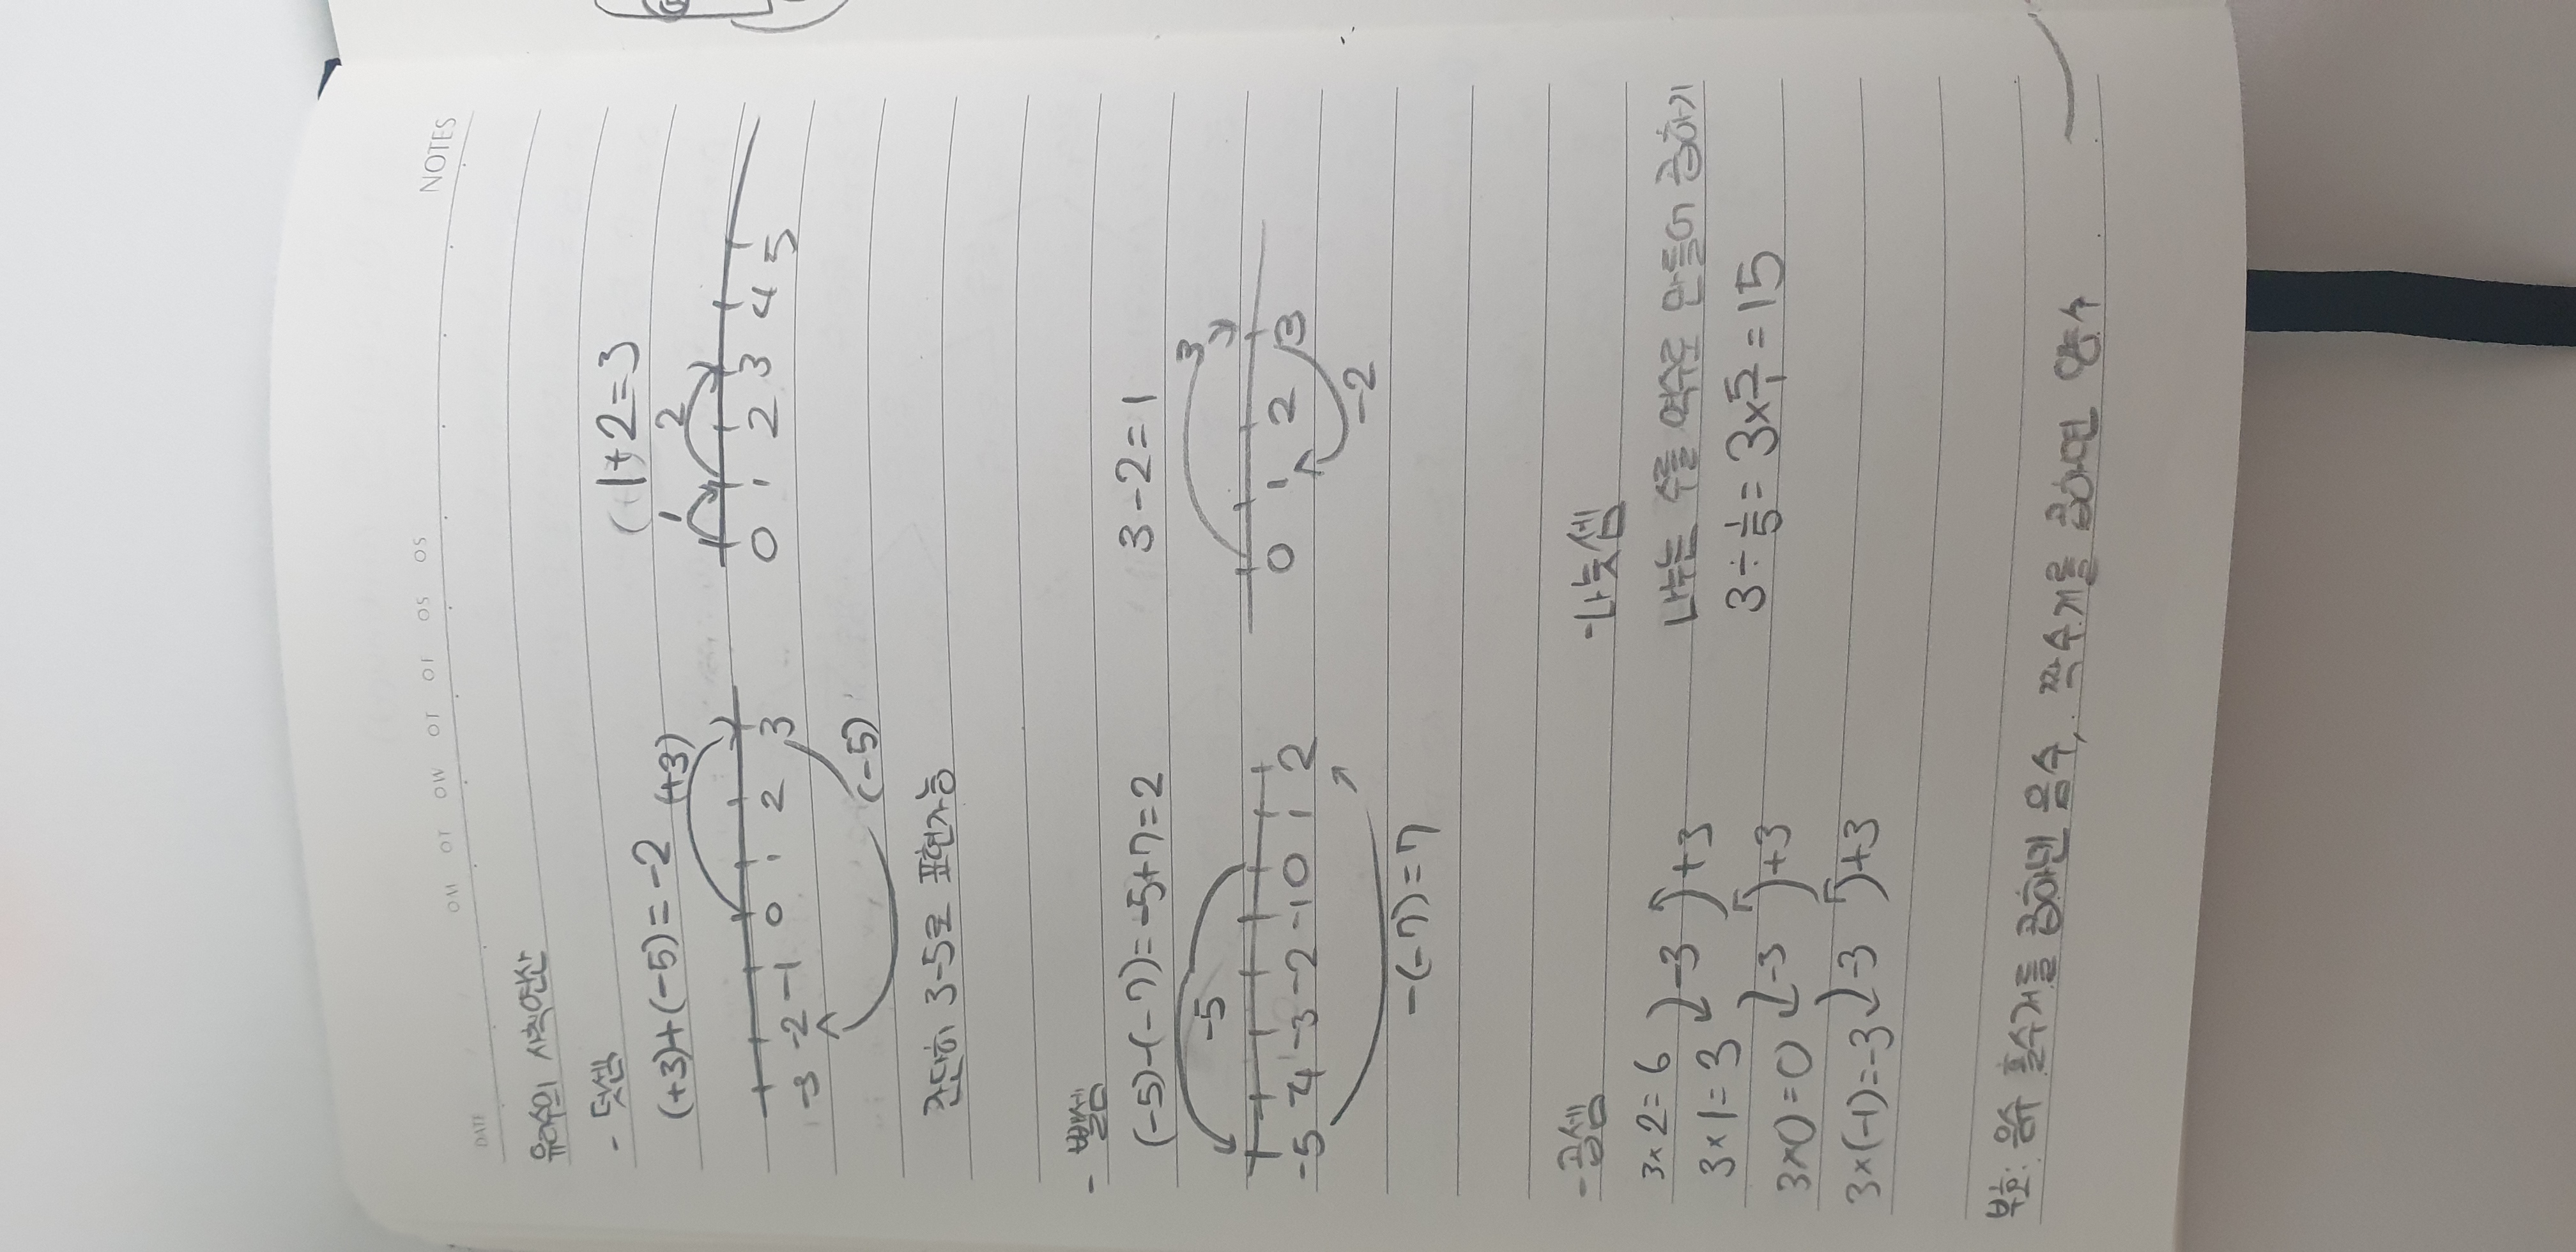 NOTES
DATE
OM OT OW OT OF OS OS
유리수의 사칙연산
- 덧셈
(+3)+(-5)=-2
1+2=3
(+3)
1 2
-3 -2 -1 0 1 2 3
0 1 2 3 4 5
(-5)
간단히 3-5로 표현가능
- 뺄셈
(-5)-(-7)=-5+7=2
3-2=1
-5
3
-5 -4 -3 -2 -1 0 1 2
0 1 2 3
-2
-(-7)=7
- 곱셈
- 나눗셈
3×2=6 -3 +3
나누는 수를 역수로 만들어 곱하기
3×1=3
3÷1/5=3×5/1=15
3×0=0 -3 +3
3×(-1)=-3 -3 +3
부호: 음수 홀수개를 곱하면 음수, 짝수개를 곱하면 양수